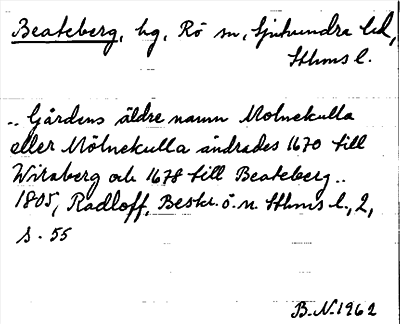 Beateberg, hg, Rö sn, Sjuhundra hd,
Sthms l.
.. Gårdens äldre namn Molnekulla
eller Mölnekulla ändrades 1670 till
Wiraberg och 1678 till Beateberg..
1805, Radloff, Beskr. ö. n. Sthms l., 2,
s. 55
B.N. 1962